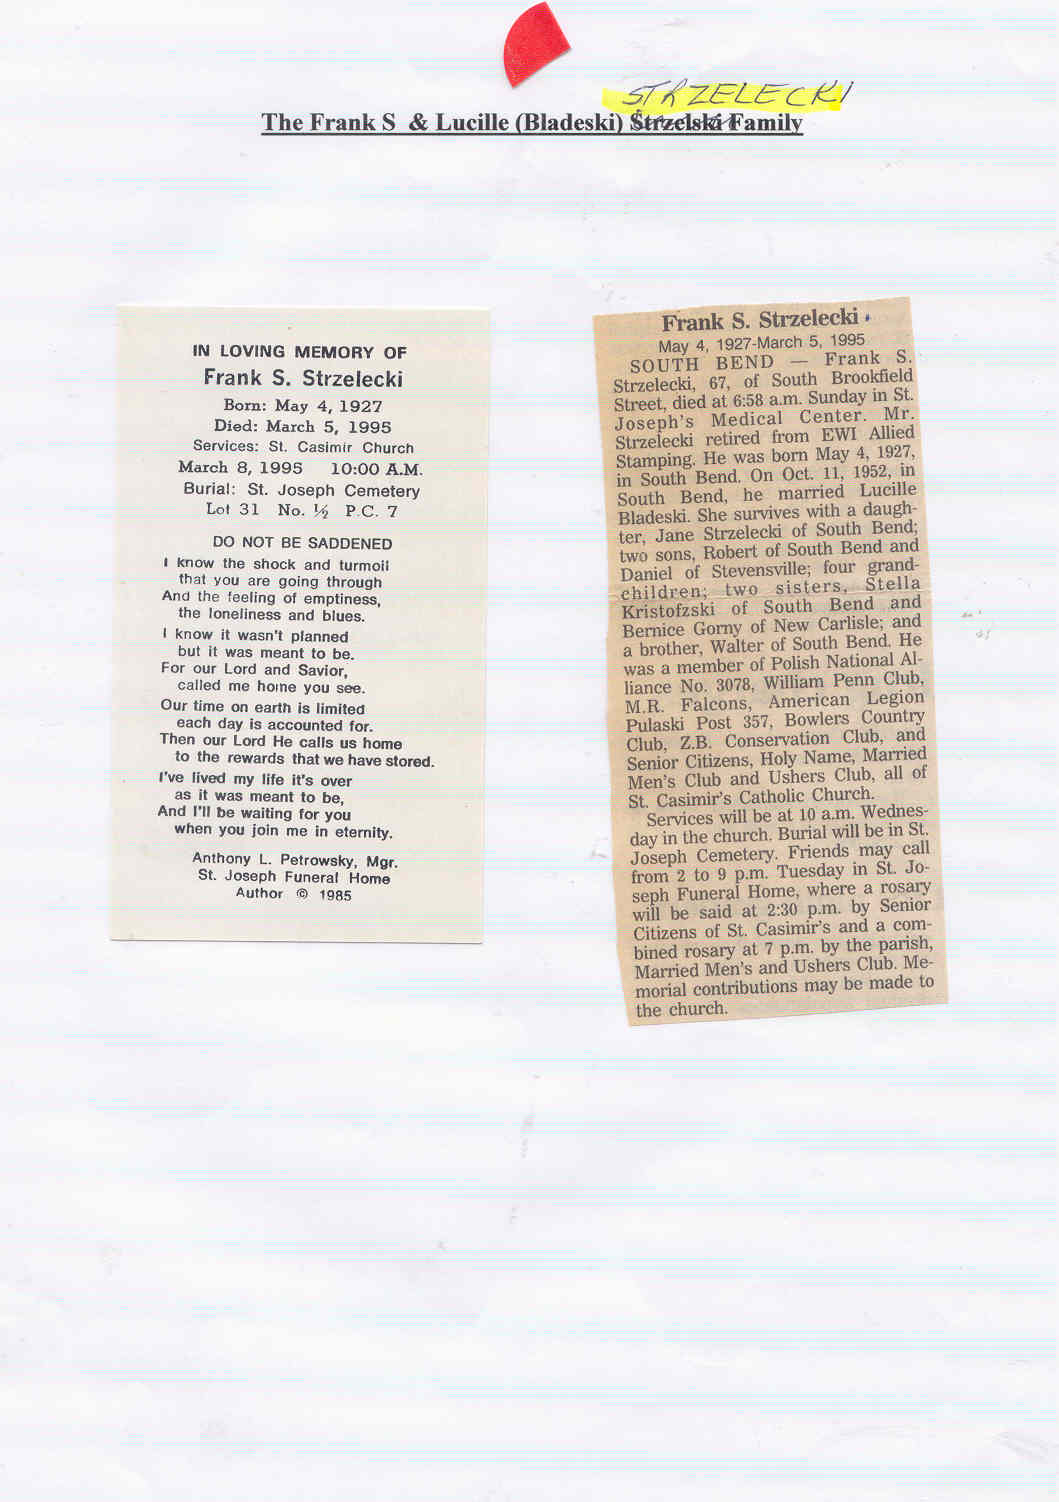 STRZELECKI
The Frank S & Lucille (Bladeski) Strzelski Family
IN LOVING MEMORY OF
Frank S. Strzelecki
Born: May 4, 1927
Died: March 5, 1995
Services: St. Casimir Church
March 8, 1995 10:00 A.M.
Burial: St. Joseph Cemetery
Lot 31 No. ½ P.C. 7
DO NOT BE SADDENED
I know the shock and turmoil
that you are going through
And the feeling of emptiness,
the loneliness and blues.
I know it wasn't planned
but it was meant to be.
For our Lord and Savior,
called me home you see.
Our time on earth is limited
each day is accounted for.
Then our Lord He calls us home
to the rewards that we have stored.
I've lived my life it's over
as it was meant to be,
And I'll be waiting for you
when you join me in eternity.
Anthony L. Petrowsky, Mgr.
St. Joseph Funeral Home
Author © 1985
Frank S. Strzelecki
May 4, 1927-March 5, 1995
SOUTH BEND — Frank S.
Strzelecki, 67, of South Brookfield
Street, died at 6:58 a.m. Sunday in St.
Joseph's Medical Center. Mr.
Strzelecki retired from EWI Allied
Stamping. He was born May 4, 1927,
in South Bend. On Oct. 11, 1952, in
South Bend, he married Lucille
Bladeski. She survives with a daugh-
ter, Jane Strzelecki of South Bend;
two sons, Robert of South Bend and
Daniel of Stevensville; four grand-
children; two sisters, Stella
Kristofzski of South Bend and
Bernice Gorny of New Carlisle; and
a brother, Walter of South Bend. He
was a member of Polish National Al-
liance No. 3078, William Penn Club,
M.R. Falcons, American Legion
Pulaski Post 357, Bowlers Country
Club, Z.B. Conservation Club, and
Senior Citizens, Holy Name, Married
Men's Club and Ushers Club, all of
St. Casimir's Catholic Church.
Services will be at 10 a.m. Wednes-
day in the church. Burial will be in St.
Joseph Cemetery. Friends may call
from 2 to 9 p.m. Tuesday in St. Jo-
seph Funeral Home, where a rosary
will be said at 2:30 p.m. by Senior
Citizens of St. Casimir's and a com-
bined rosary at 7 p.m. by the parish,
Married Men's and Ushers Club. Me-
morial contributions may be made to
the church.